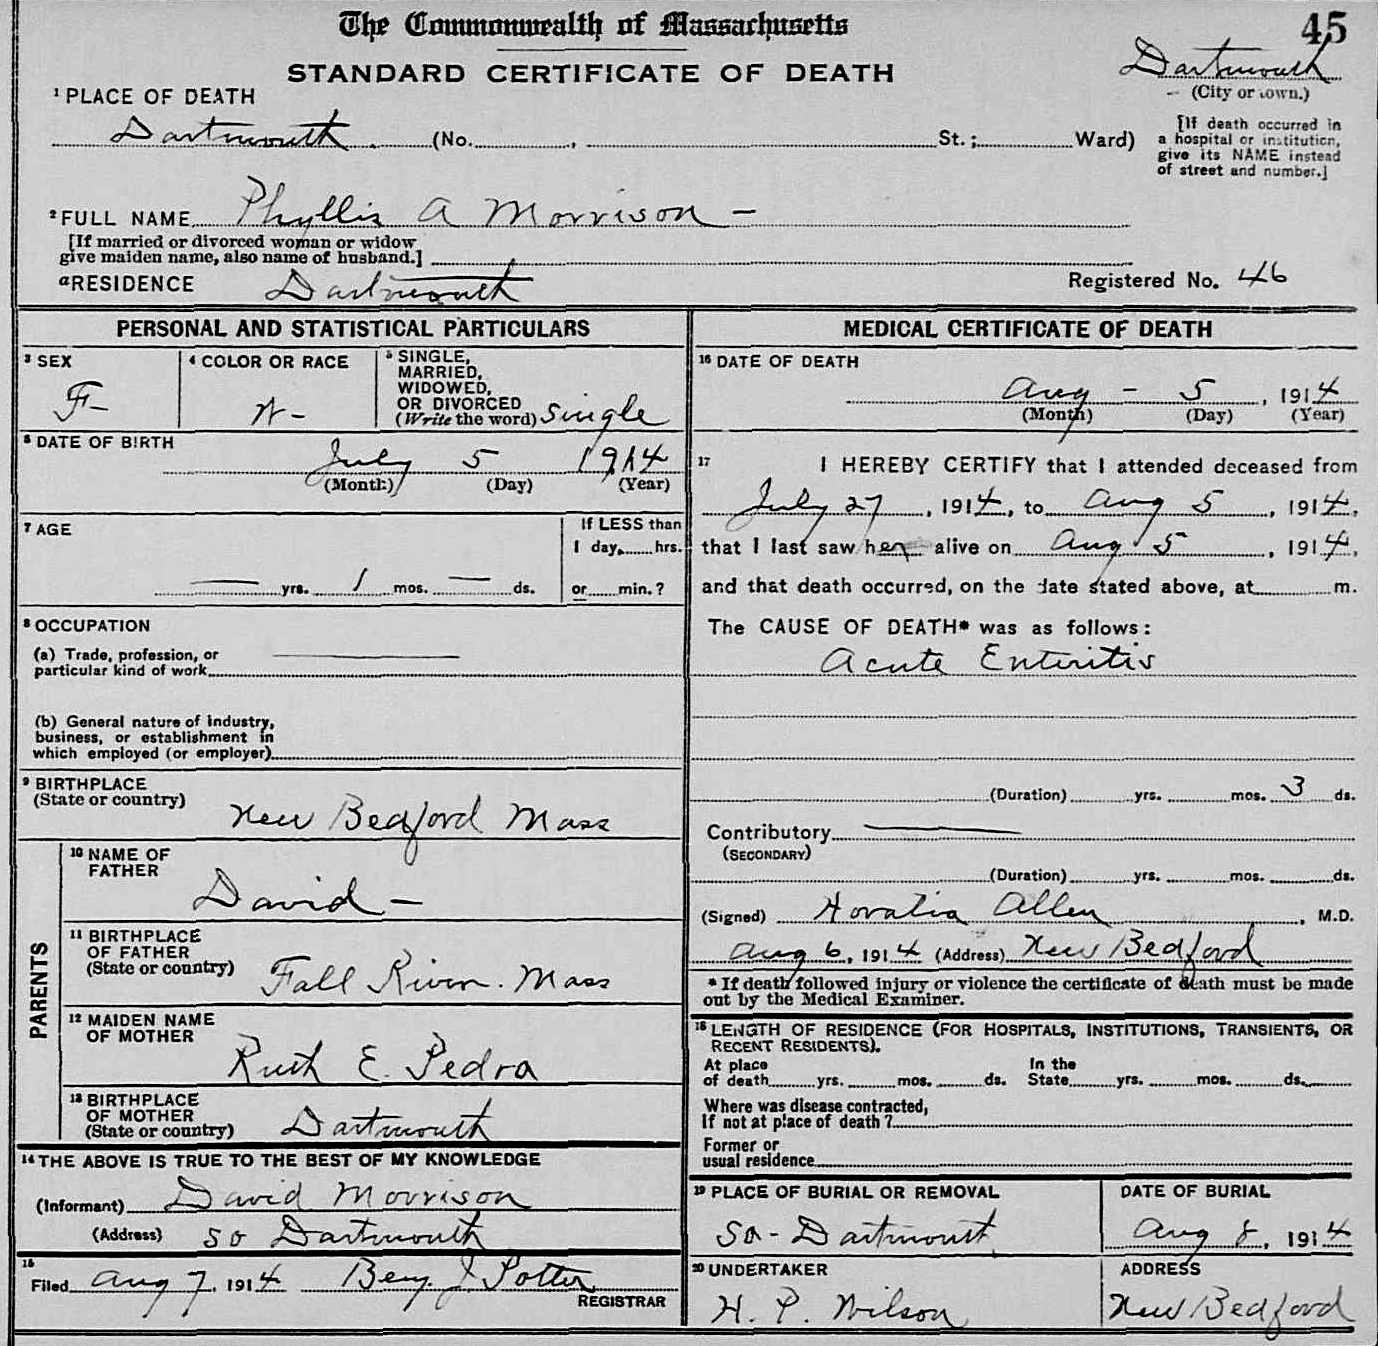 The Commonwealth of Massachusetts
45
STANDARD CERTIFICATE OF DEATH
Dartmouth
(City or town.)
1 PLACE OF DEATH
Dartmouth (No. , St.; Ward)
[If death occurred in
a hospital or institution,
give its NAME instead
of street and number.]
2 FULL NAME Phyllis A Morrison -
[If married or divorced woman or widow
give maiden name, also name of husband.]
a RESIDENCE Dartmouth
Registered No. 46
PERSONAL AND STATISTICAL PARTICULARS
3 SEX
F-
4 COLOR OR RACE
W-
5 SINGLE,
MARRIED,
WIDOWED,
OR DIVORCED
(Write the word) Single
6 DATE OF BIRTH
July 5 1914
(Month) (Day) (Year)
7 AGE
— yrs. 1 mos. — ds.
If LESS than
1 day, hrs.
or min.?
8 OCCUPATION
(a) Trade, profession, or
particular kind of work
(b) General nature of industry,
business, or establishment in
which employed (or employer)
9 BIRTHPLACE
(State or country)
New Bedford Mass
PARENTS
10 NAME OF
FATHER
David -
11 BIRTHPLACE
OF FATHER
(State or country) Fall River. Mass
12 MAIDEN NAME
OF MOTHER
Ruth E. Pedro
13 BIRTHPLACE
OF MOTHER
(State or country) Dartmouth
14 THE ABOVE IS TRUE TO THE BEST OF MY KNOWLEDGE
(Informant) David Morrison
(Address) So Dartmouth
15
Filed Aug 7, 1914 Benj. J. Potter
REGISTRAR
MEDICAL CERTIFICATE OF DEATH
16 DATE OF DEATH
Aug - 5, 1914
(Month) (Day) (Year)
17 I HEREBY CERTIFY that I attended deceased from
July 27, 1914, to Aug 5, 1914,
that I last saw her alive on Aug 5, 1914,
and that death occurred, on the date stated above, at m.
The CAUSE OF DEATH* was as follows:
Acute Enteritis
(Duration) yrs. mos. 3 ds.
Contributory
(SECONDARY)
(Duration) yrs. mos. ds.
(Signed) Horatio Allen, M.D.
Aug 6, 1914 (Address) New Bedford
* If death followed injury or violence the certificate of death must be made
out by the Medical Examiner.
18 LENGTH OF RESIDENCE (FOR HOSPITALS, INSTITUTIONS, TRANSIENTS, OR
RECENT RESIDENTS).
At place
of death yrs. mos. ds.
In the
State yrs. mos. ds.
Where was disease contracted,
If not at place of death?
Former or
usual residence
19 PLACE OF BURIAL OR REMOVAL
So- Dartmouth
DATE OF BURIAL
Aug 8, 1914
20 UNDERTAKER
H. P. Wilson
ADDRESS
New Bedford